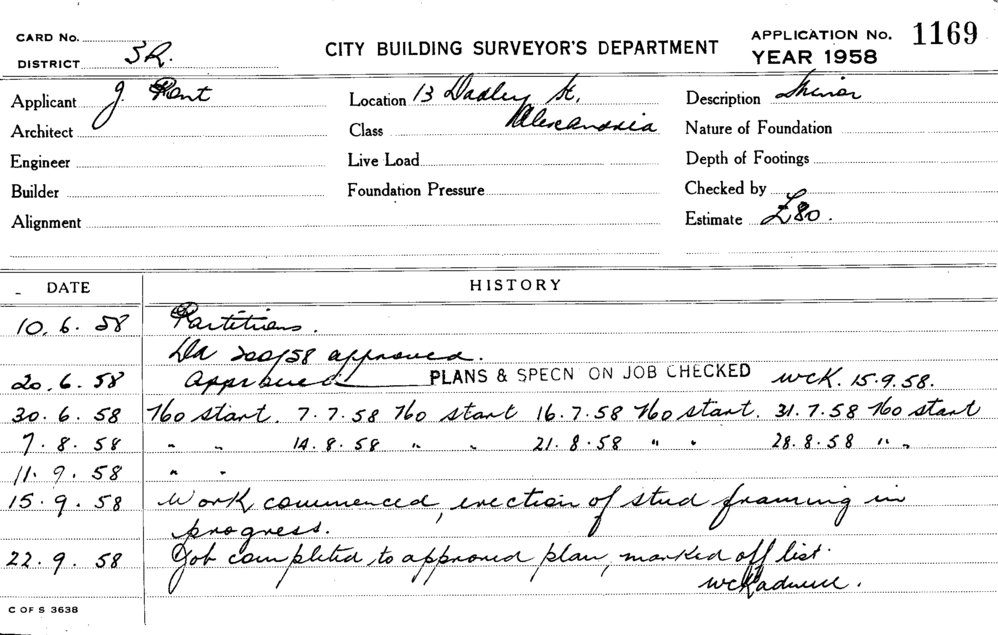 CARD No.
DISTRICT 3R.
CITY BUILDING SURVEYOR'S DEPARTMENT
APPLICATION No. 1169
YEAR 1958
Applicant J. Pent
Location 13 Dadley St, Alexandria
Description Minor
Architect
Class
Nature of Foundation
Engineer
Live Load
Depth of Footings
Builder
Foundation Pressure
Checked by
Alignment
Estimate £80.
DATE HISTORY
10.6.58 Partitions.
DA 200/58 approved.
20.6.58 Approved PLANS & SPECN ON JOB CHECKED WCK. 15.9.58.
30.6.58 No start. 7.7.58 No start 16.7.58 No start. 31.7.58 No start
7.8.58 " " 14.8.58 " " 21.8.58 " " 28.8.58 " "
11.9.58 " "
15.9.58 Work commenced, erection of stud framing in
progress.
22.9.58 Job completed to approved plan, marked off list.
C OF S 3638